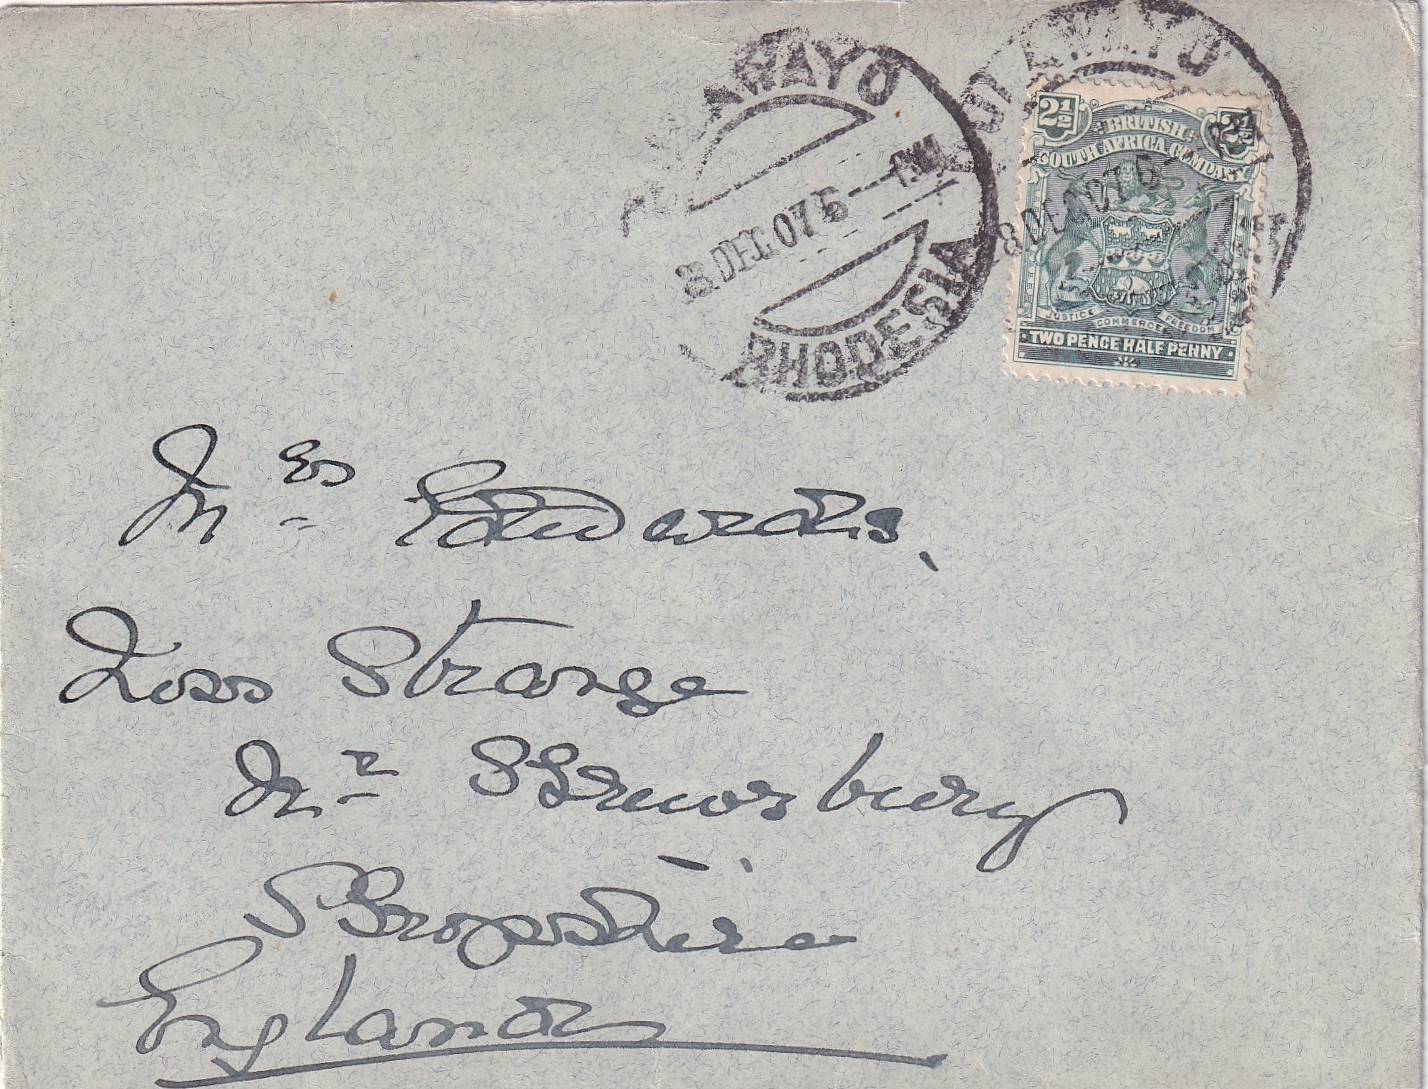 BULAWAYO
8 DEC 07 5
RHODESIA
BULAWAYO
8 DEC 07 5
2½ 2½
BRITISH
SOUTH AFRICA COMPANY
JUSTICE COMMERCE FREEDOM
TWO PENCE HALF PENNY
Mrs Edwards,
Ross Strange
Nr Shrewsbury
Shropshire
England